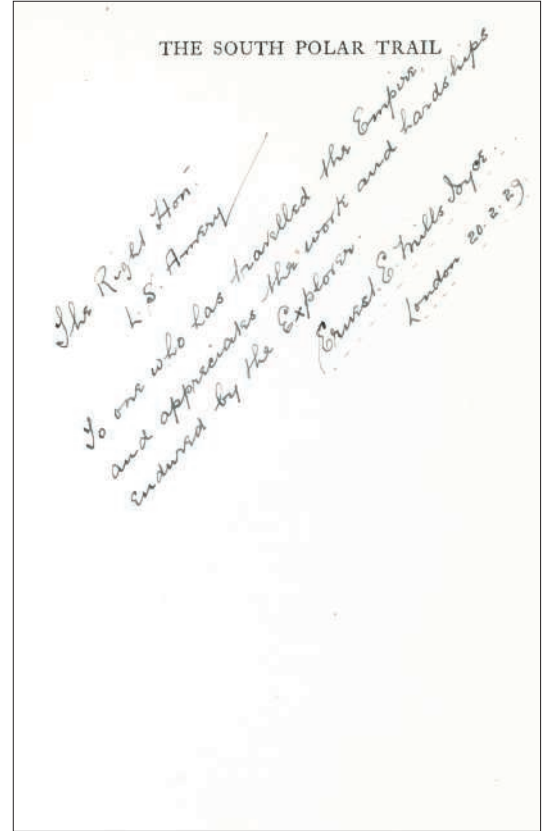 THE SOUTH POLAR TRAIL
The Right Hon:
L. S. Amery
To one who has travelled the Empire.
and appreciates the work and hardships
endured by the Explorer.
Ernest. E. Mills Joyce.
London 20.2.29